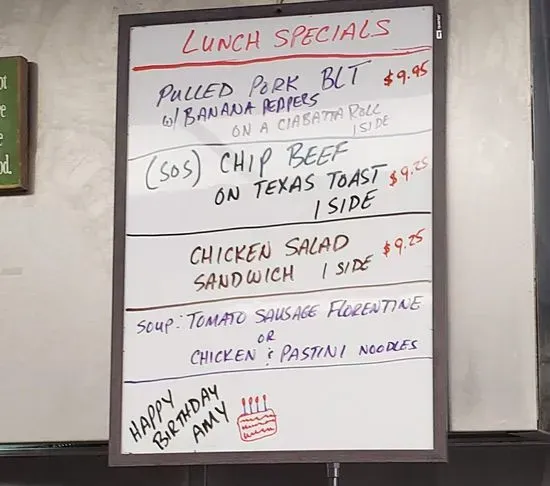 LUNCH SPECIALS
PULLED PORK BLT $9.95
W/ BANANA PEPPERS
ON A CIABATTA ROLL
1 SIDE
(SOS) CHIP BEEF
ON TEXAS TOAST $9.25
1 SIDE
CHICKEN SALAD $9.25
SANDWICH 1 SIDE
SOUP: TOMATO SAUSAGE FLORENTINE
OR
CHICKEN & PASTINI NOODLES
HAPPY
BIRTHDAY
AMY